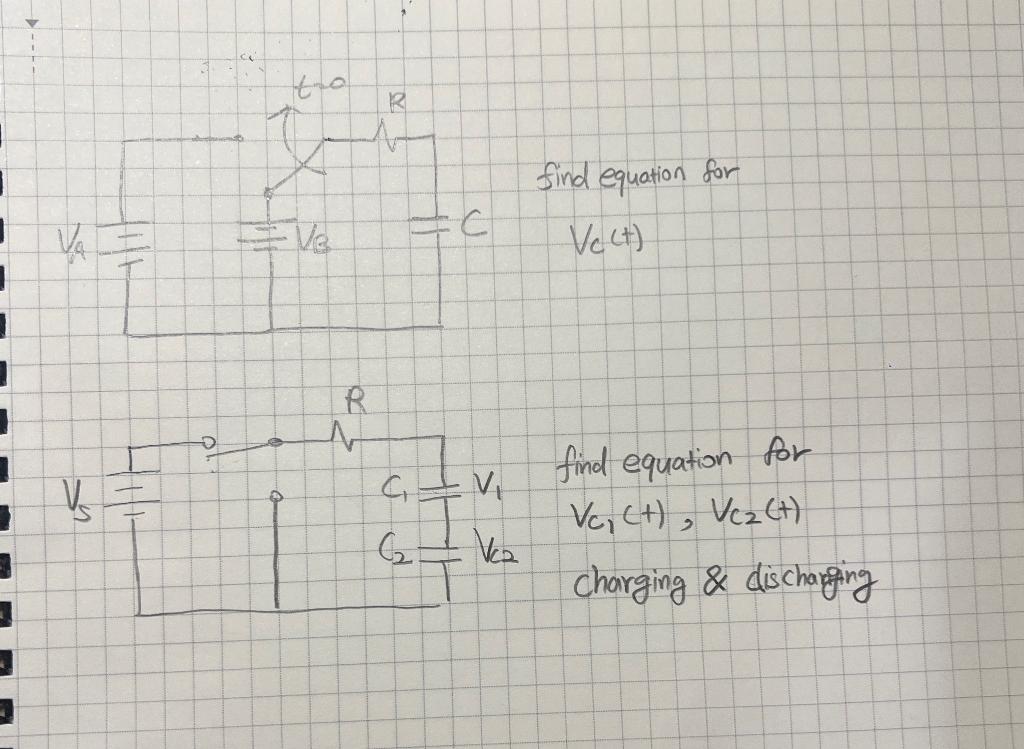 t=0
R
VA
VB
C
find equation for
Vc(t)
R
Vs
C1
V1
C2
Vc2
find equation for
Vc1(t), Vc2(t)
charging & discharging